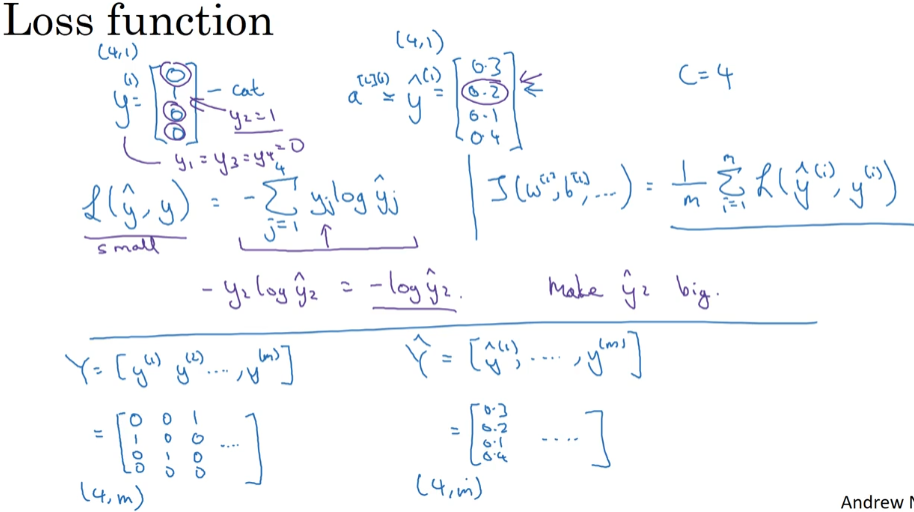 Loss function
(4,1)
y^(1) = [0 1 0 0] - cat
y₂ = 1
y₁ = y₃ = y₄ = 0
(4,1)
a^[L](i) = ŷ^(i) = [0.3 0.2 0.1 0.4]
C = 4
L(ŷ, y) = - Σ_{j=1}^{4} y_j log ŷ_j
small
J(w^[1], b^[1], ...) = 1/m Σ_{i=1}^{m} L(ŷ^(i), y^(i))
- y₂ log ŷ₂ = - log ŷ₂. Make ŷ₂ big.
Y = [y^(1) y^(2) ...., y^(m)]
Ŷ = [ŷ^(1), ...., y^(m)]
= [0 0 1
1 0 0 ....
0 1 0
0 0 0]
(4,m)
= [0.3
0.2
0.1 ....
0.4]
(4,m)
Andrew N